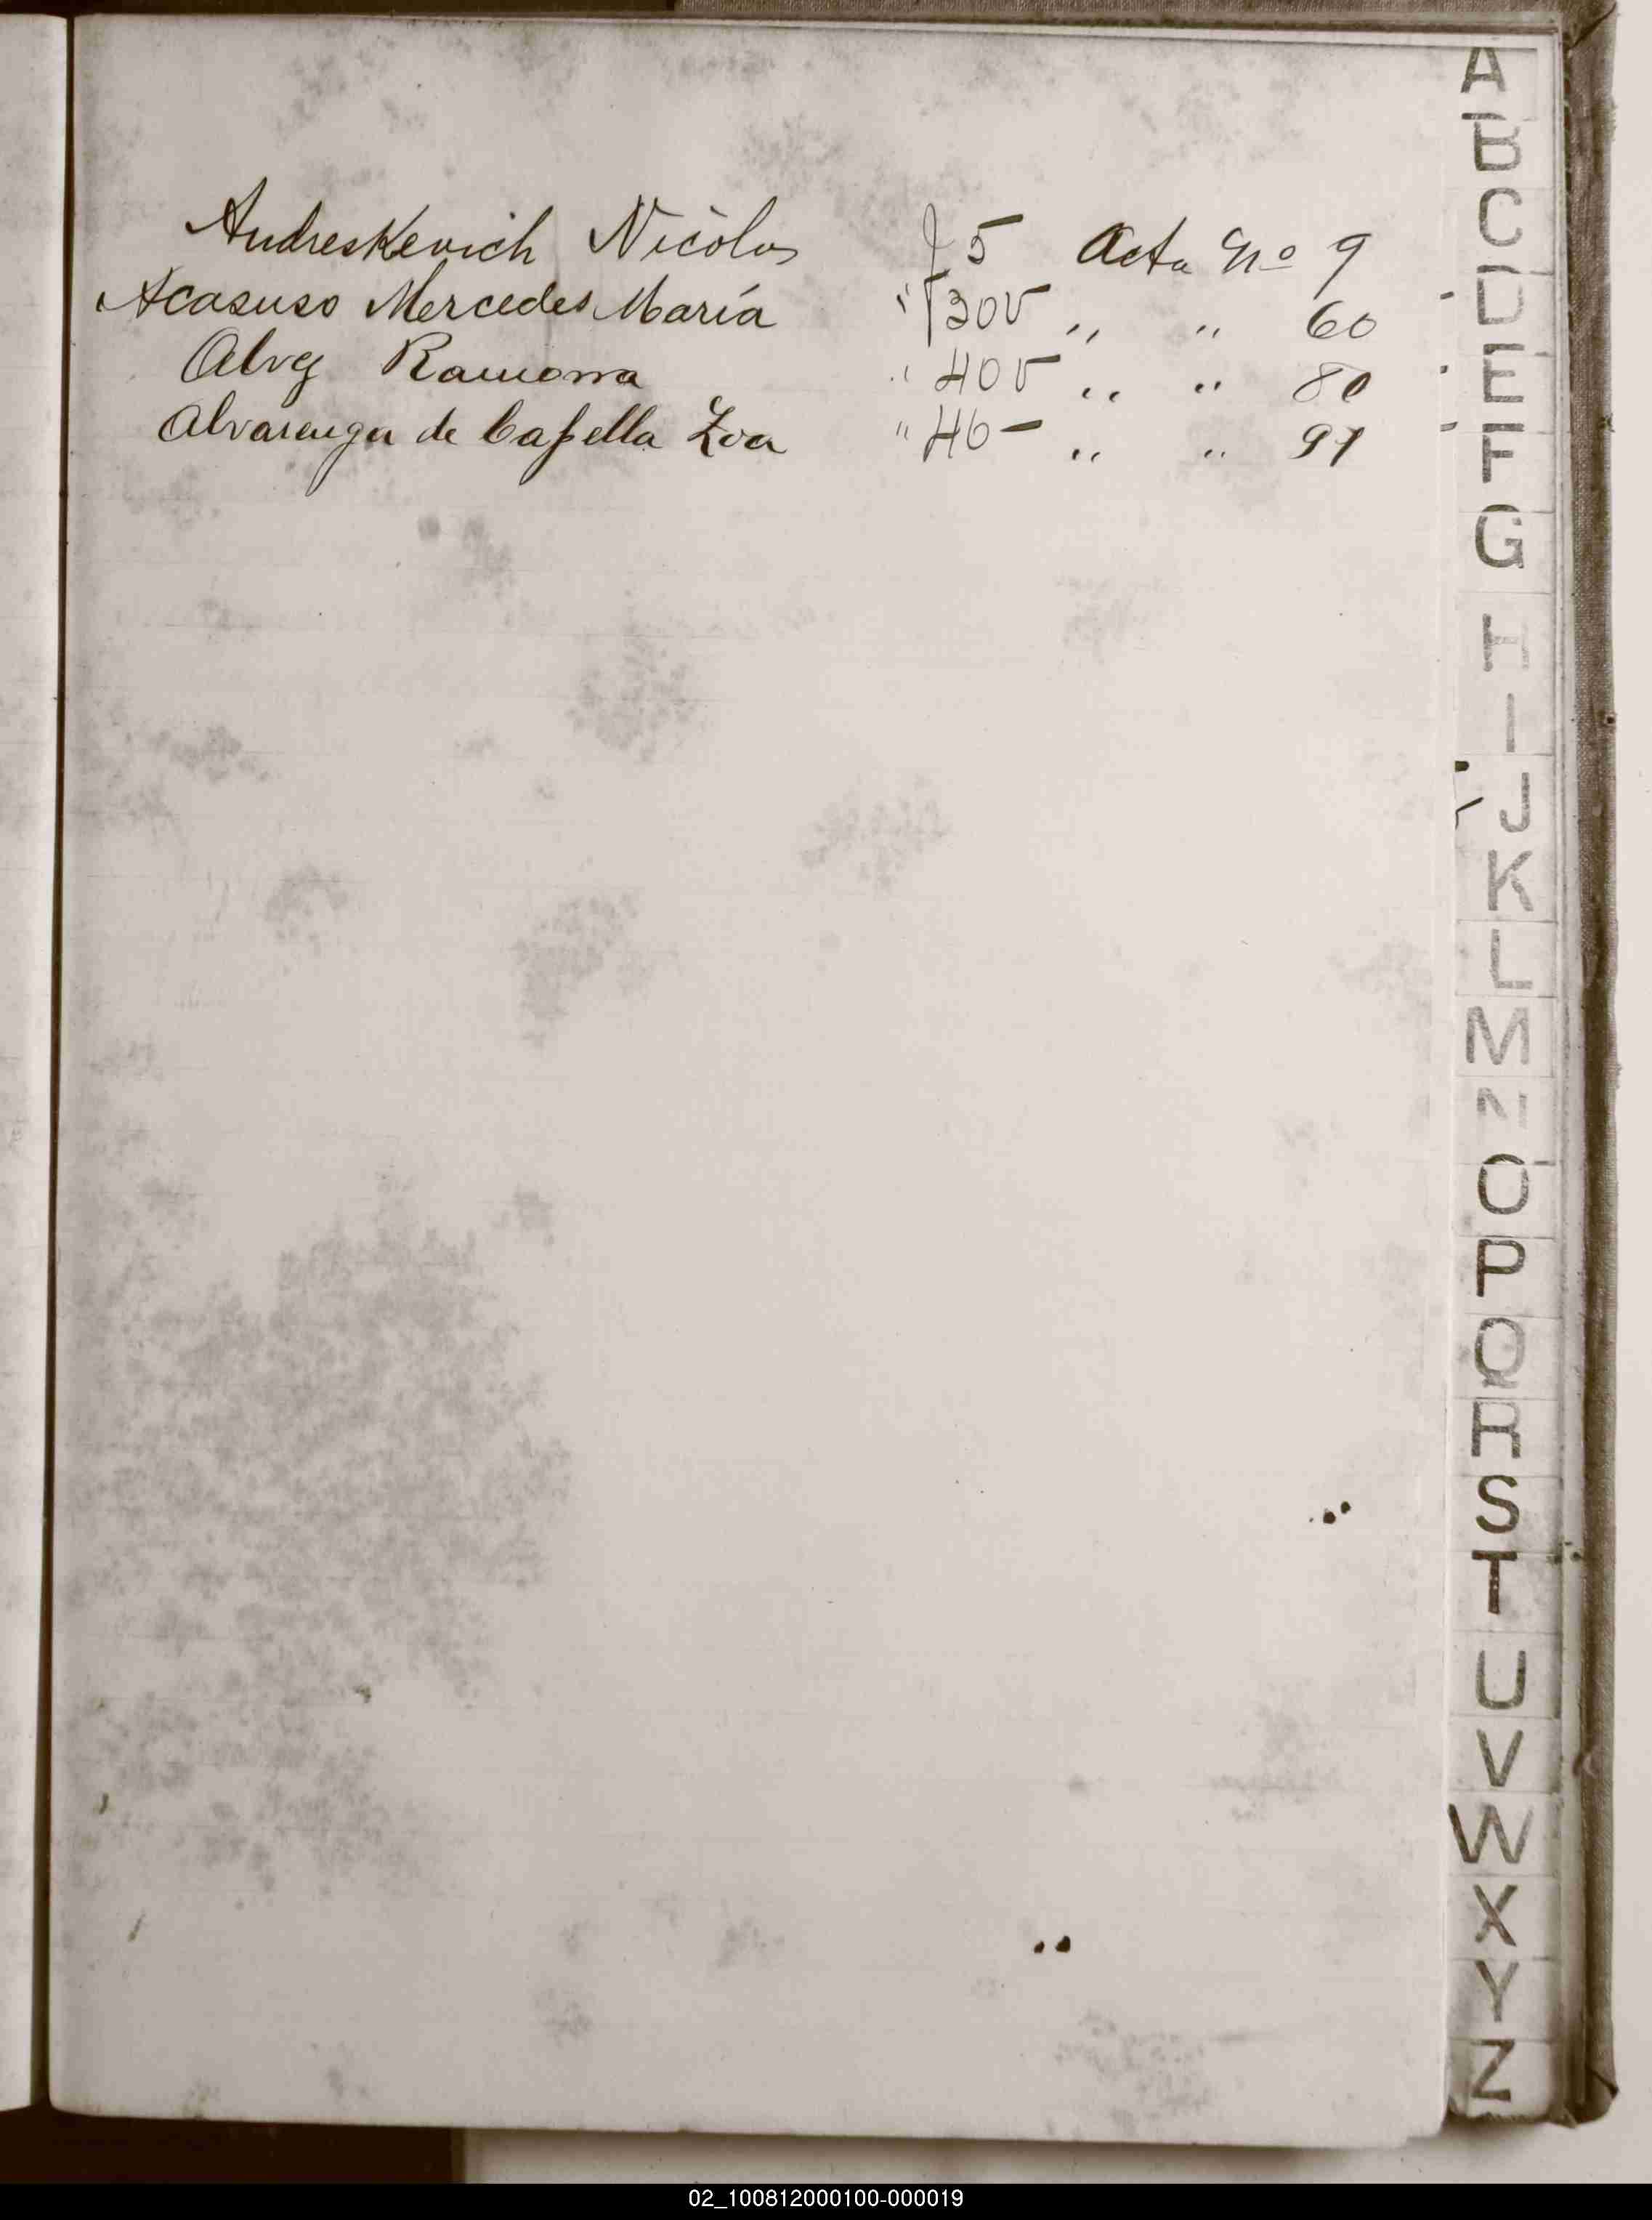 Andreskevich Nicolas f 5 Acta Nº 9
Acasuso Mercedes María " 30v " " 60
Alvez Ramona " 40v " " 80
Alvarenga de Capella Zoa " 46 - " " 91
A
B
C
D
E
F
G
H
I
J
K
L
M
N
O
P
Q
R
S
T
U
V
W
X
Y
Z
02_100812000100-000019